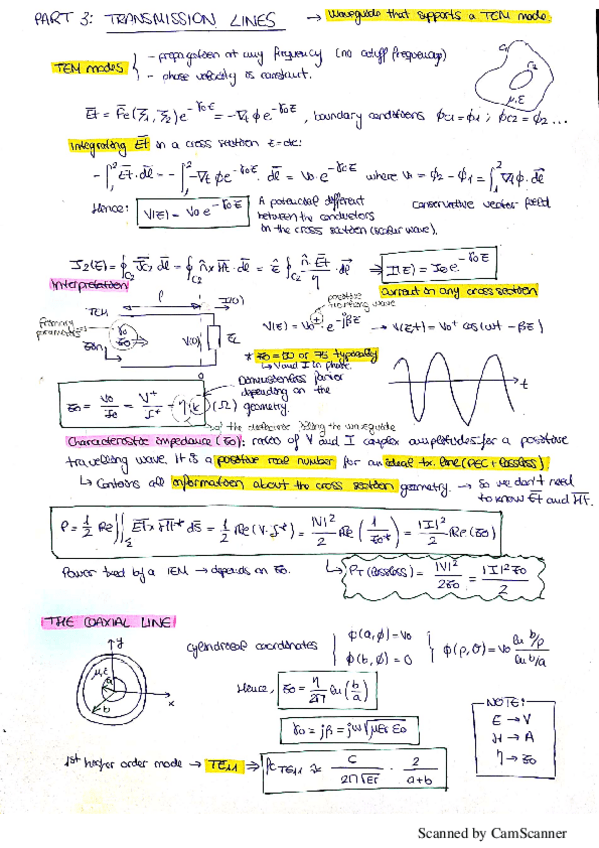 PART 3: TRANSMISSION LINES → Waveguide that supports a TEM mode.
TEM modes { - propagation at any frequency (no cutoff frequency)
- phase velocity is constant.
C1
C2
μ,ε
, boundary conditions ϕC1 = ϕ1 ; ϕC2 = ϕ2 ...
Integrating Et in a cross section
where V0 = ϕ2 - ϕ1 = ∫₁² ∇tϕ · dl
Hence: V(z) = V0 e^-γ0z
A potencial different
between the conductors
in the cross section (scalar wave).
conservative vector field
⇒ I(z) = I0 e^-γ0z
Interpretation
Current in any cross section
TEM
l
I(0)
primary
parameters
γ0
z0
V(0)
ZL
0
positive
travelling wave
V(z) = V0⁺ e^-jβz → V(z,t) = V0⁺ cos(ωt - βz)
* z0 = 50 or 75 typically
↳ V and I in phase.
t
z0 = V0/I0 = V⁺/I⁺ = η·k (Ω)
Dimensionless factor
depending on the
geometry.
of the dielectric filling the waveguide
Characteristic impedance (z0): ratio of V and I complex amplitudes for a positive
travelling wave. It is a positive real number for an ideal tx. line (PEC + lossless).
↳ Contains all information about the cross section geometry. → so we don't need
to know Et and Ht.
P = 1/2 Re ∬ Et × Ht* ds = 1/2 Re(V·I*) = |V|²/2 Re(1/z0*) = |I|²/2 Re(z0)
Power by a TEM → depends on z0.
↳ PT (lossless) = |V|²/2z0 = |I|² z0/2
THE COAXIAL LINE
y
x
μ,ε
a
b
cylindrical coordinates { ϕ(a,ϕ) = V0
ϕ(b,ϕ) = 0
} ϕ(ρ,θ) = V0 ln b/ρ / ln b/a
Hence, z0 = η/2π ln(b/a)
γ0 = jβ = jω√μεr ε0
NOTE:
E → V
H → A
η → z0
1st higher order mode → TE11 ⇒ fc TE11 ≈ c/2π√εr · 2/a+b
Scanned by CamScanner